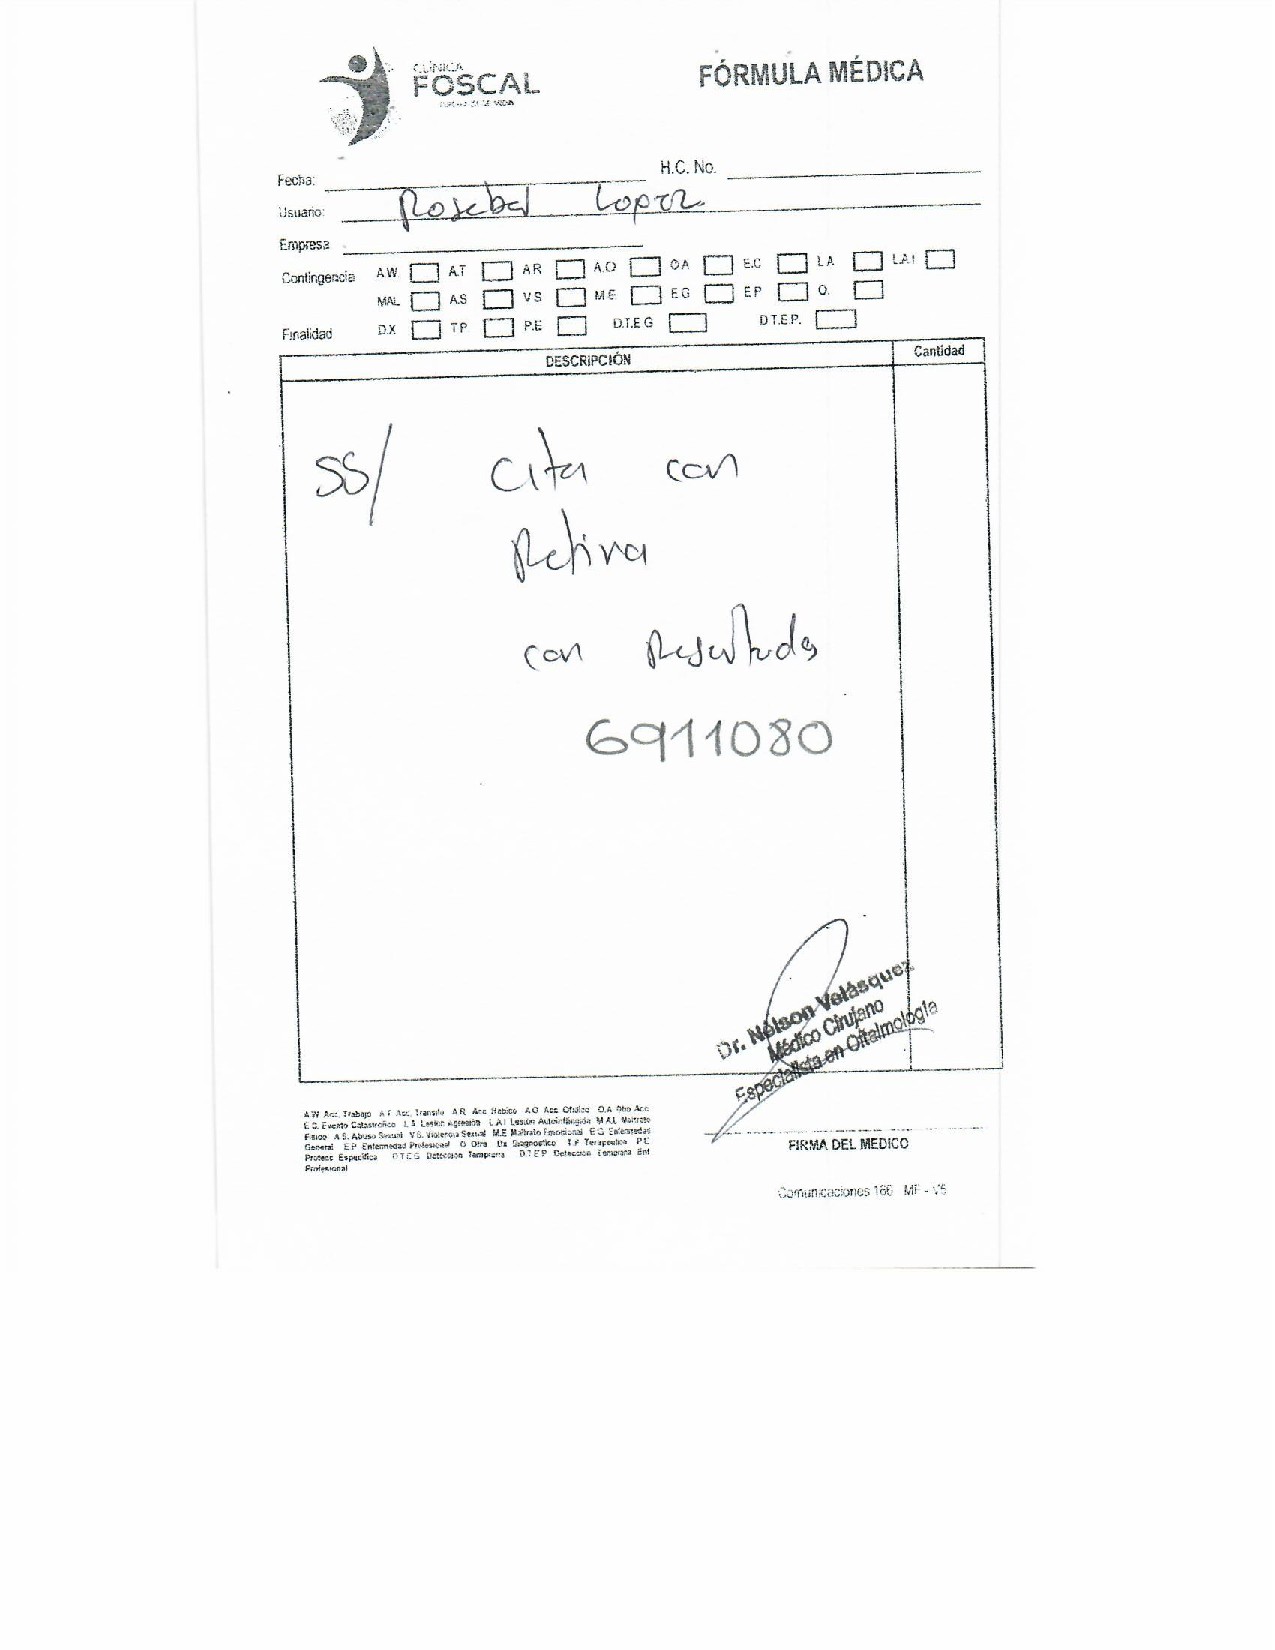 CLÍNICA
FOSCAL
FÓRMULA MÉDICA
H.C. No.
Fecha:
Usuario: Rosebel Lopez
Empresa
Contingencia AW A.T AR A.O O.A E.C L.A L.A.I
MAL A.S V.S M.E E.G E.P O.
Finalidad D.X T.P P.E D.T.E.G D.T.E.P.
DESCRIPCIÓN Cantidad
SS/ Cita con
Retina
con Resultados
6911080
Dr. Nelson Velásquez
Médico Cirujano
Especialista en Oftalmología
A.W Acc. Trabajo A.T Acc. Transito A.R Acc. Rabico A.O Acc. Ofidico O.A Otro Acc
E.C. Evento Catastrofico L.A Lesión Agresión L.A.I Lesión Autoinflingida M.A.L Maltrato
Fisico A.S. Abuso Sexual V.S. Violencia Sexual M.E Maltrato Emocional E.G Enfermedad
General E.P Enfermedad Profesional O Otra Dx Diagnostico T.P Terapeutico P.E
Protecc Especifica D.T.E.G Deteccion Temprana D.T.E.P Deteccion Temprana Enf
Profesional
FIRMA DEL MEDICO
Comunicaciones 166 MF - V5